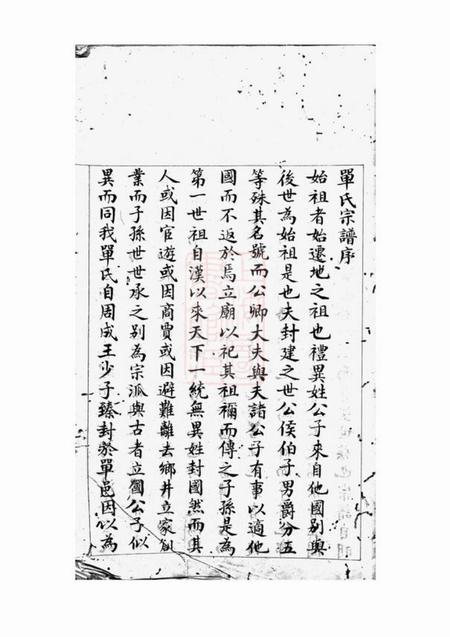 單氏宗譜序
始祖者始遷地之祖也禮異姓公子來自他國別與
後世為始祖是也夫封建之世公侯伯子男爵分五
等殊其名號而公卿大夫與夫諸公子有事以適他
國而不返於焉立廟以祀其祖禰而傳之子孫是為
第一世祖自漢以來天下一統無異姓封國然而其
人或因官遊或因商賈或因避難離去鄉井立家創
業而子孫世世承之別為宗派與古者立國公子似
異而同我單氏自周成王少子臻封於單邑因以為